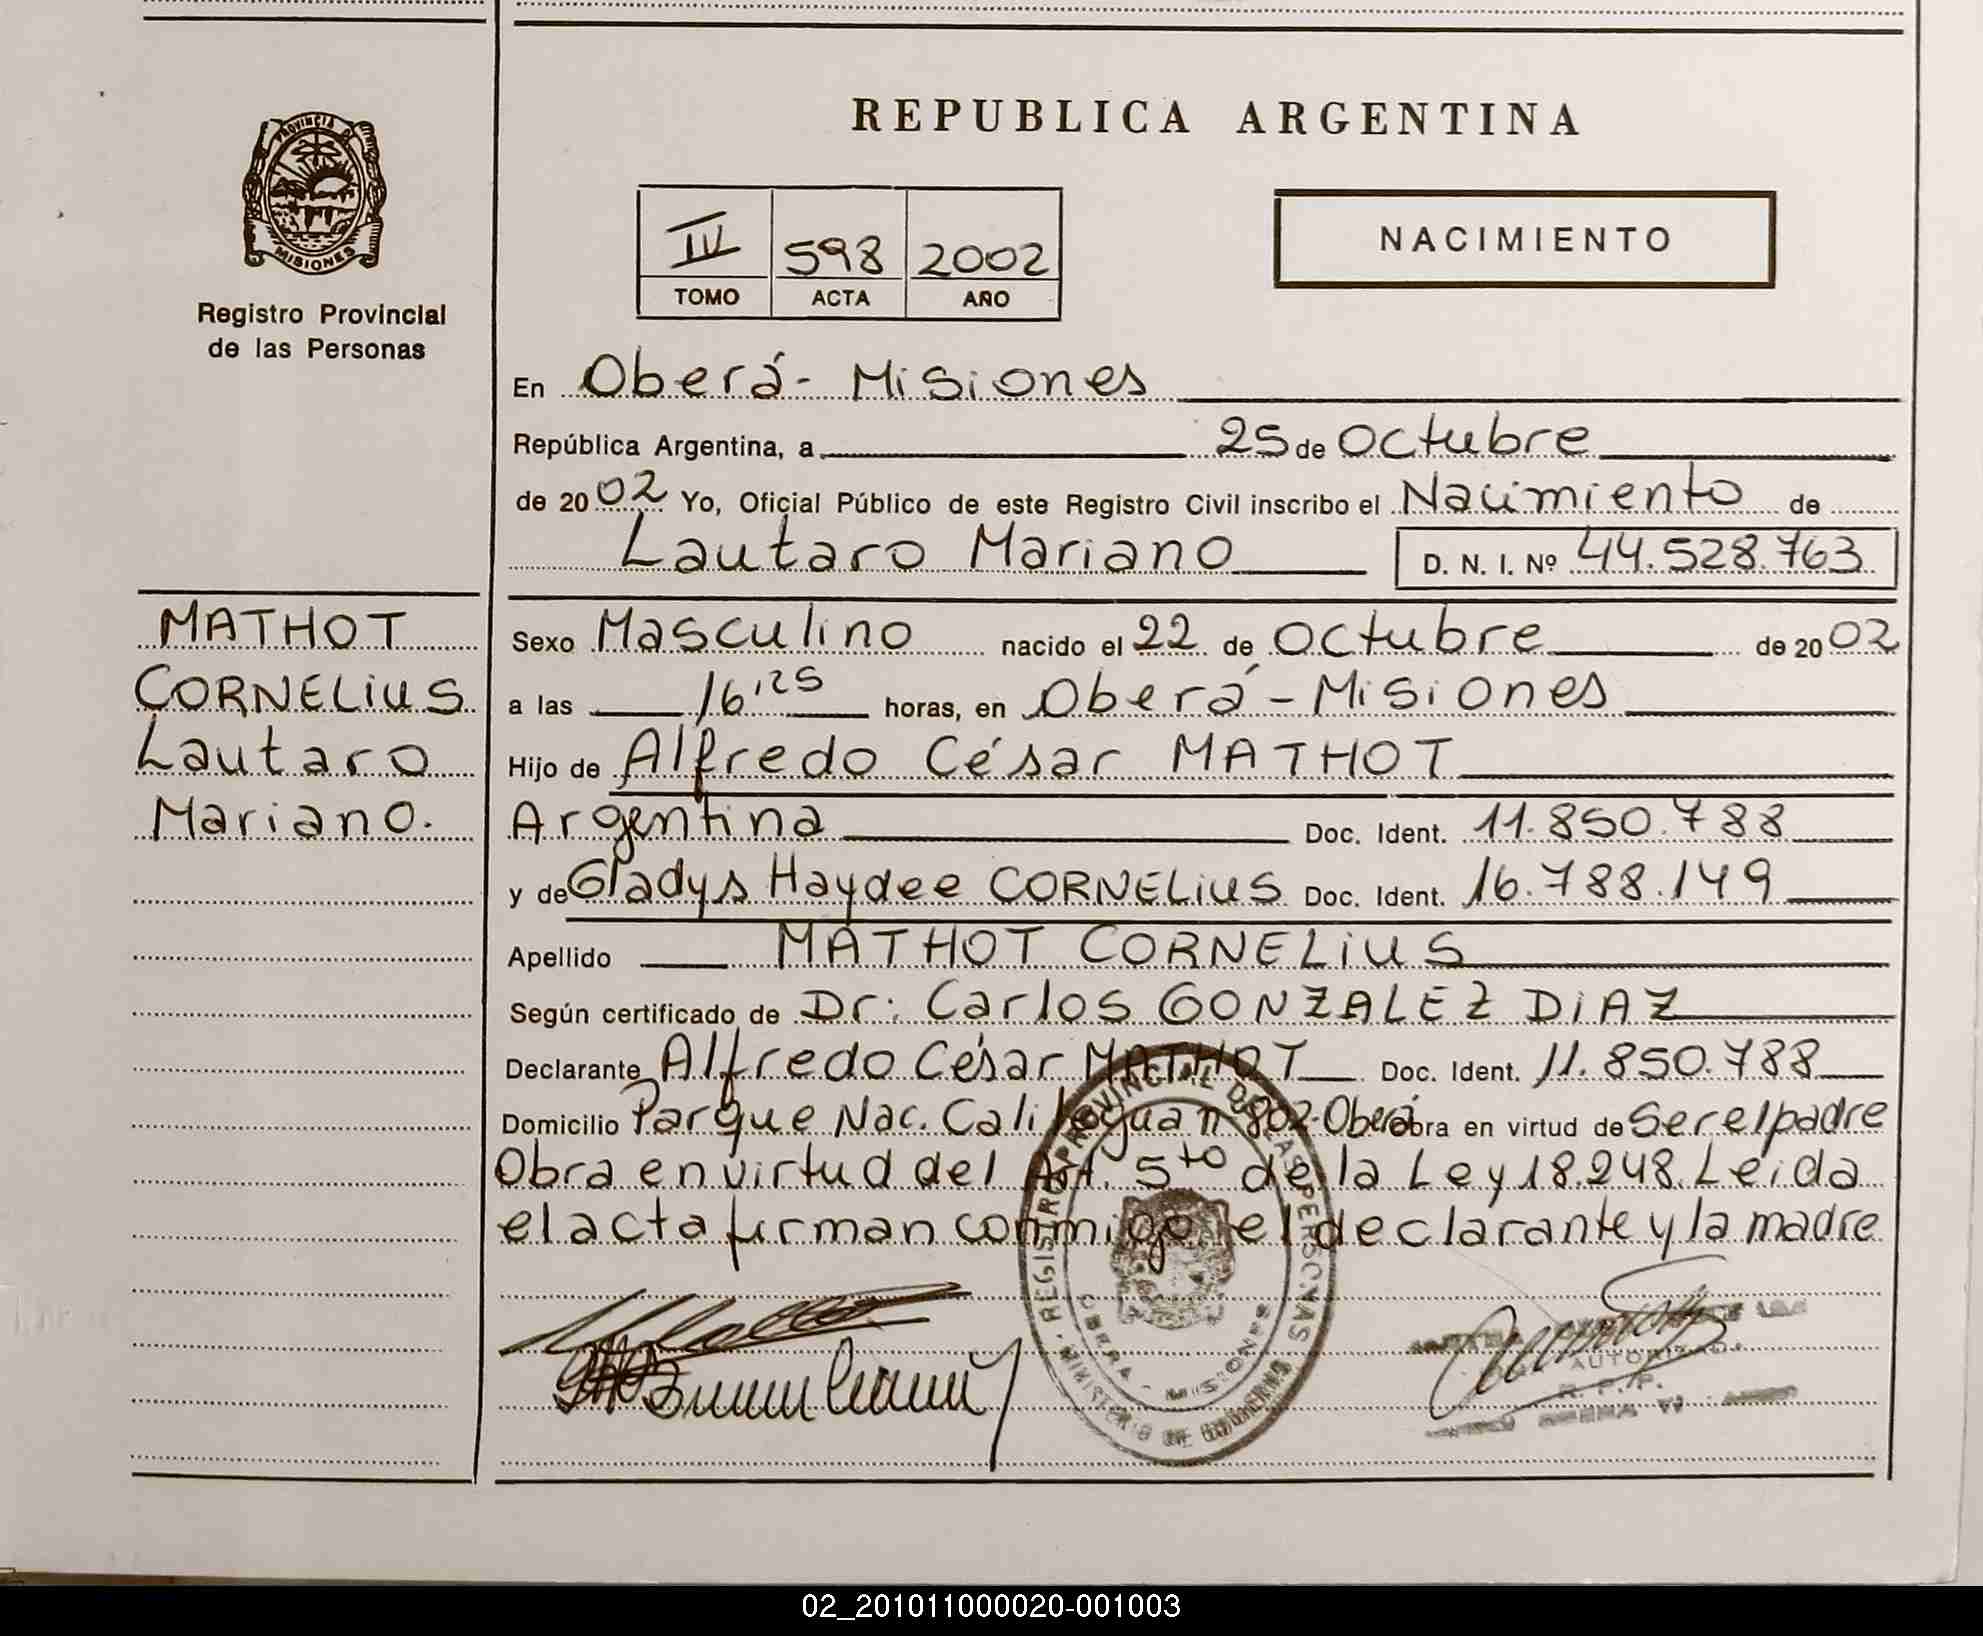 REPUBLICA ARGENTINA
PROVINCIA D
MISIONES
Registro Provincial
de las Personas
IV 598 2002
TOMO ACTA AÑO
NACIMIENTO
En Oberá - Misiones
República Argentina, a 25 de Octubre
de 2002 Yo, Oficial Público de este Registro Civil inscribo el Nacimiento de
Lautaro Mariano D. N. I. Nº 44.528.763
MATHOT
CORNELIUS
Lautaro
Mariano.
Sexo Masculino nacido el 22 de Octubre de 2002
a las 16,25 horas, en Oberá - Misiones
Hijo de Alfredo César MATHOT
Argentina Doc. Ident. 11.850.788
y de Gladys Haydee CORNELIUS Doc. Ident. 16.788.149
Apellido MATHOT CORNELIUS
Según certificado de Dr: Carlos GONZALEZ DIAZ
Declarante Alfredo César MATHOT Doc. Ident. 11.850.788
Domicilio Parque Nac. Calilegua n 802-Oberá obra en virtud de Ser el padre
Obra en virtud del Art. 5to de la Ley 18.248. Leída
el acta firman conmigo el declarante y la madre
REGISTRO PROVINCIAL DE LAS PERSONAS
OBERA - MISIONES
MINISTERIO DE GOBIERNO
AUTORIZAD
R. P. P.
02_201011000020-001003